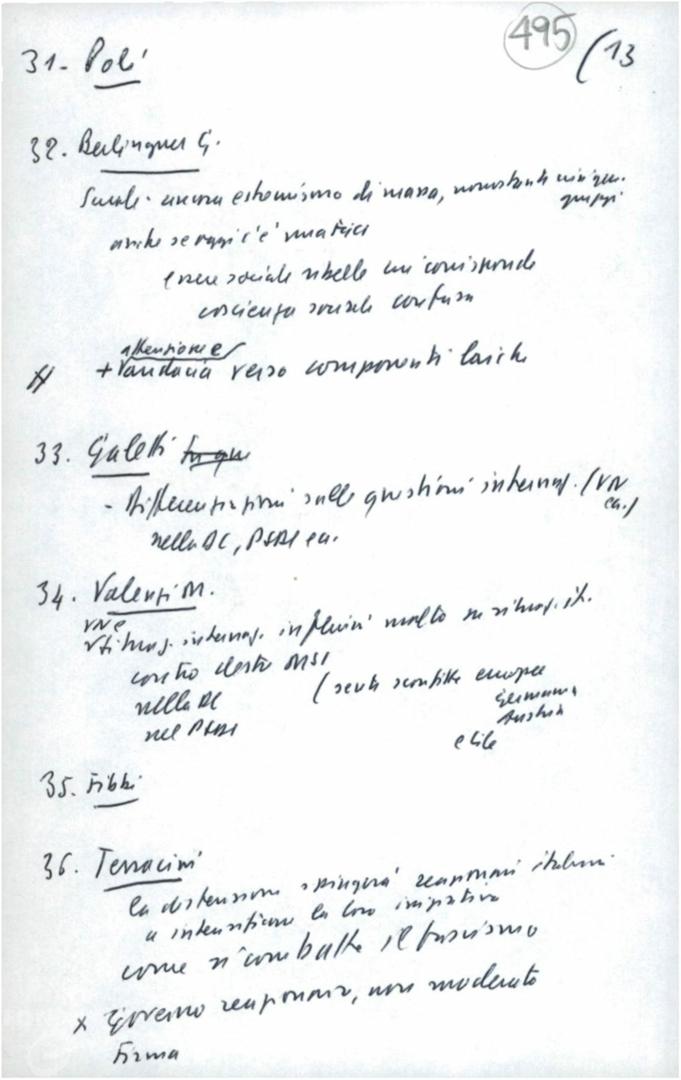 495 (13
31. Poli
32. Berlinguer G.
Scuola - ancora estremismo di massa, nonostante
gruppi
anche se oggi c'è
essere sociale ribelle cui corrisponde
coscienza sociale confusa
attenzione e
+ audacia verso componenti laiche
33. Galetti
- Differenziazioni sulle questioni internaz. (VN
ecc.)
nella DC, PSDI ecc.
34. Valenzi M.
VN e
situaz. internaz. influirà molto su situaz. it.
contro destra MSI
nella DC (
sconfitte europee
Germania
nel PSDI
Austria
e Cile
35. Fibbi
36. Terracini
la distensione spingerà reazionari italiani
a intensificare la loro iniziativa
come si combatte il fascismo
x Governo reazionario, non moderato
Firma